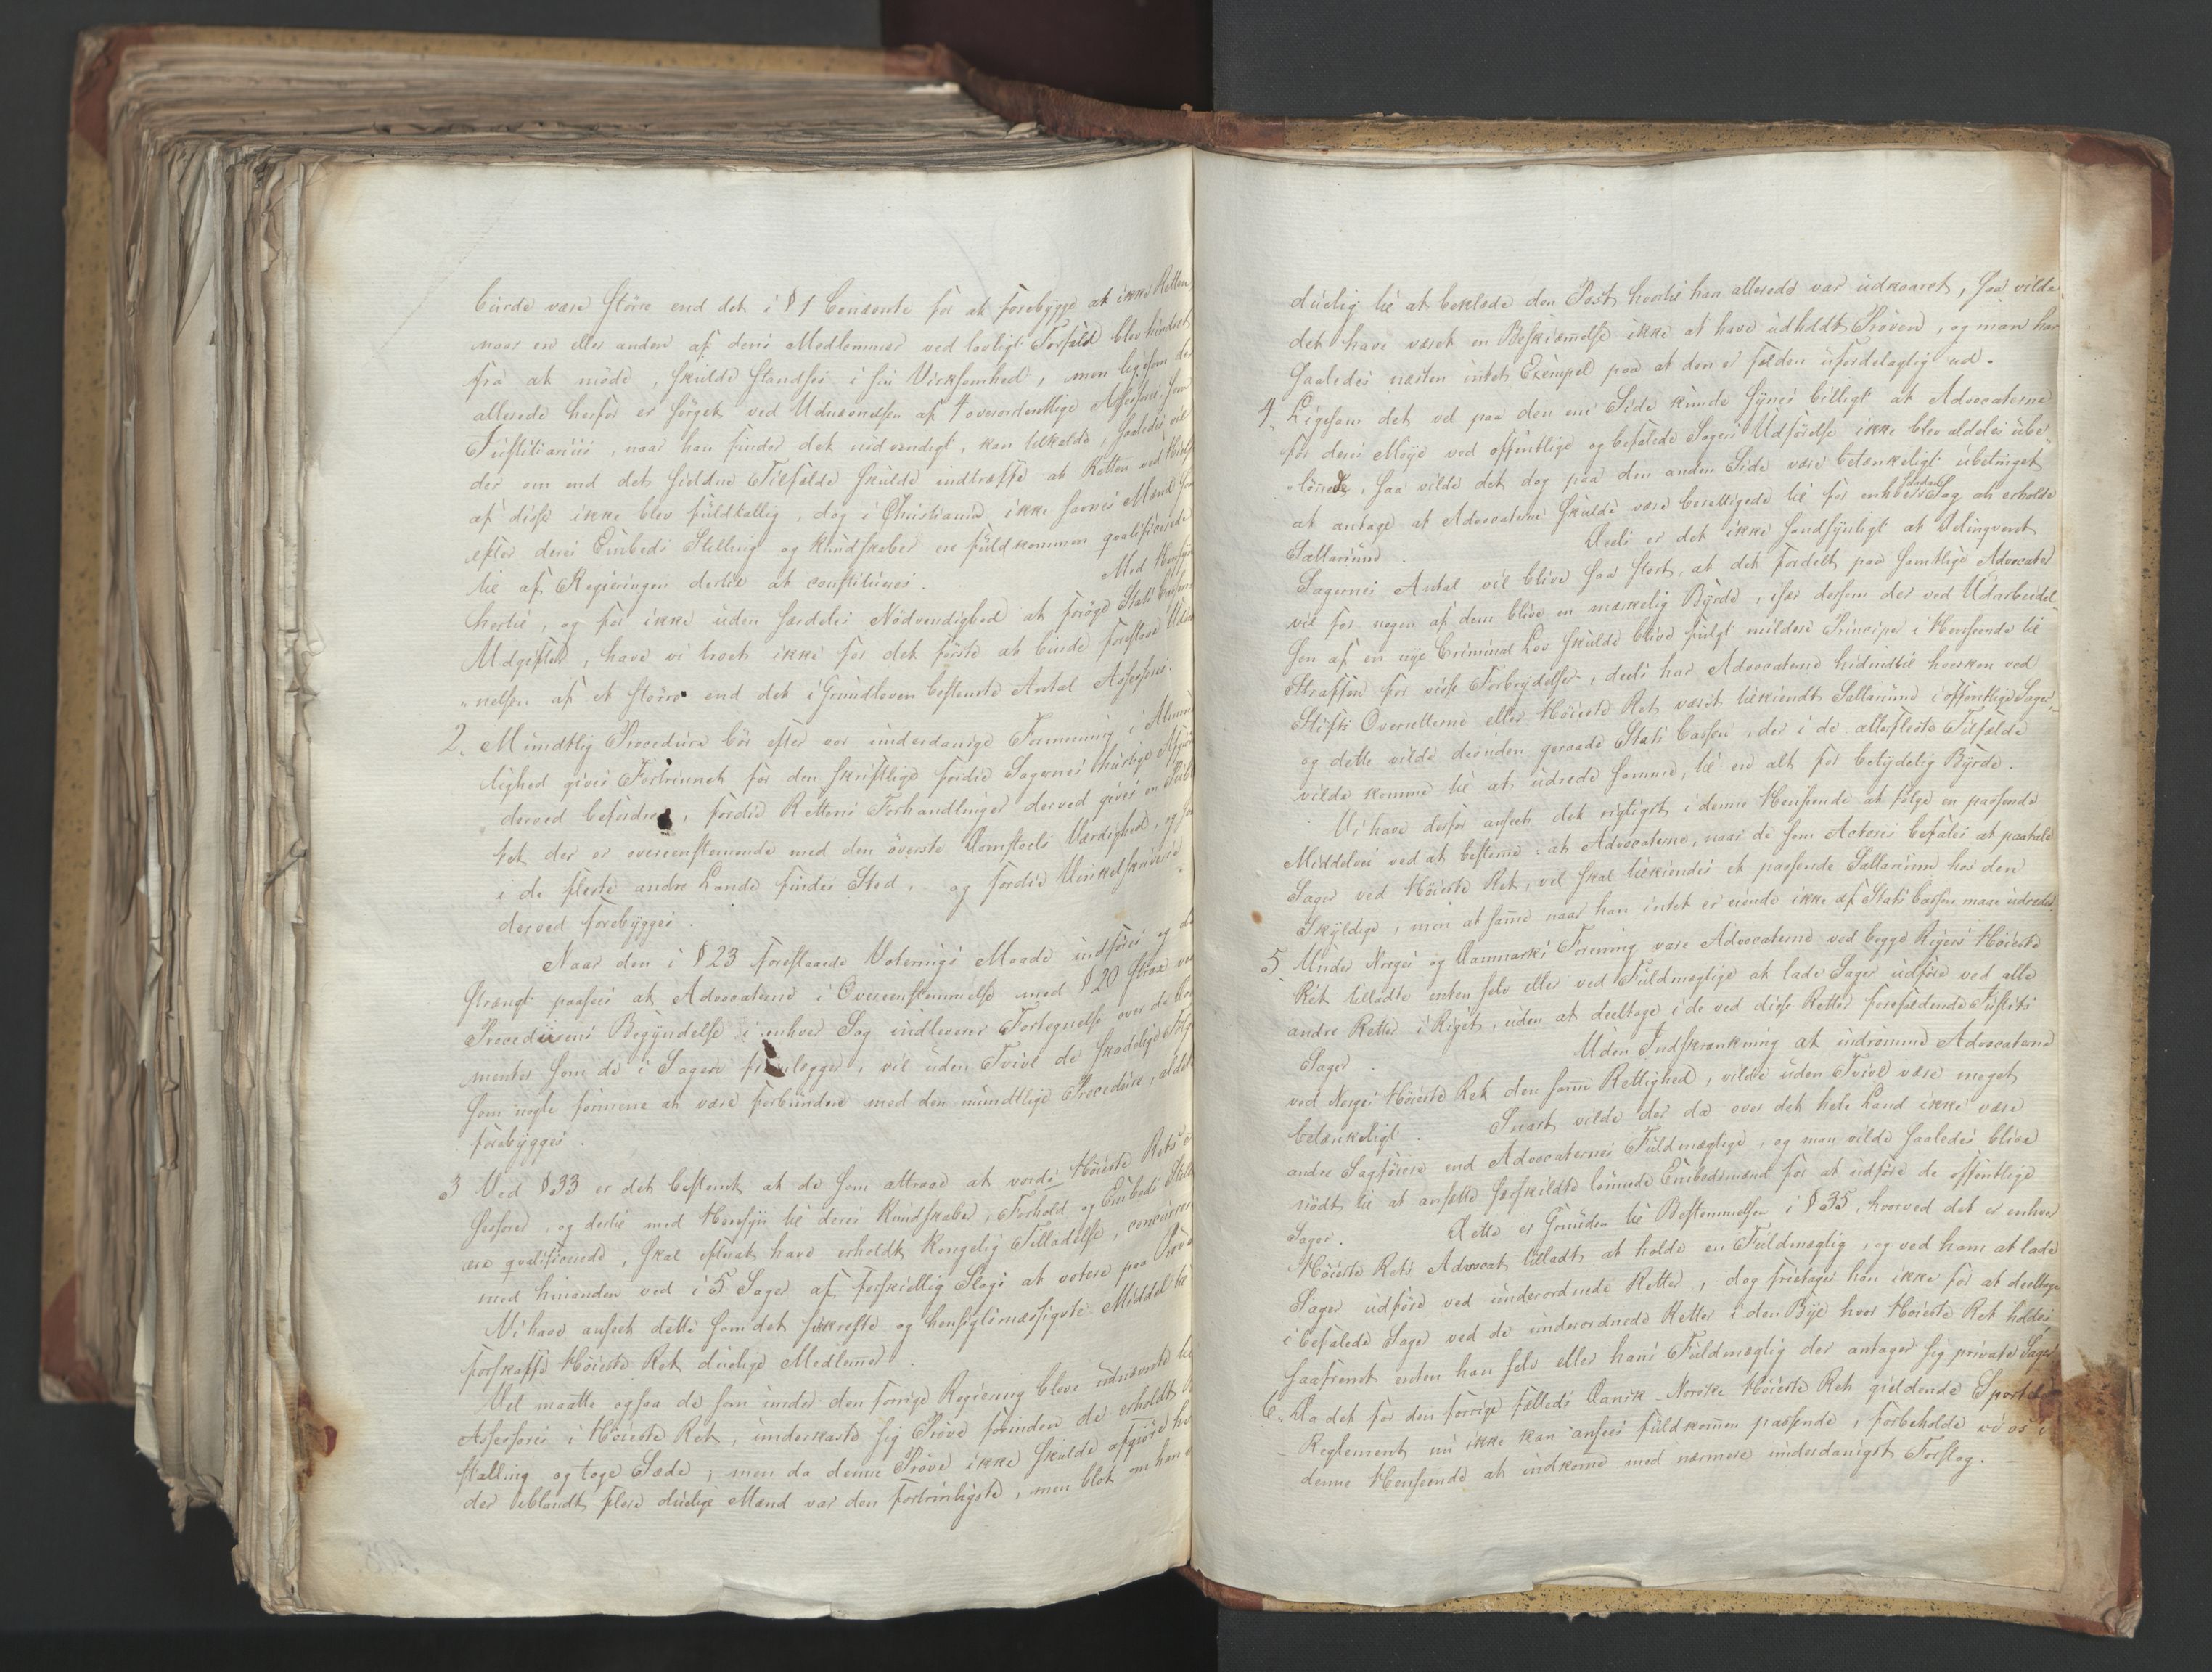 burde være större end det i § 1 benævnte for at forebygge at ikke Retten
naar en eller anden af dens Medlemmer ved lovligt Forfald blev hindret
fra at möde, skulde standses i sin Virksomhed, men ligesom der
allerede herfor er sörget ved Udnævnelsen af 4 overordentlige Assessores som
Justitiarius, naar han finder det nødvendigt, kan tilkalde, saaledes vil
der om end det sieldne Tilfælde skulde indtræffe at Retten ved
af disse ikke blev fuldtallig, dog i Christiania ikke savnes Mænd som
efter deres Embeds Stilling og Kundskaber ere fuldkommen qvalificerede
til af Regieringen dertil at constitueres. Med Hensyn
hertil, og for ikke uden særdeles Nödvendighed at foröge Stats Cassens
Udgifter, have vi troet ikke for det förste at burde foreslaae
"nelsen af et större end det i Grundloven bestemte Antal Assessores.
2. Mundtlig Procedure bör efter vor underdanige Formening i
lighed gives Fortrinnet for den skriftlige fordie Sagernes hurtige
derved befordres, fordie Rettens Forhandlinger derved gives en
tet der er overeensstemmende med den överste Domstoels Værdighed, og som
i de fleste andre Lande finder Sted, og fordie Vinkelskriverie
derved forebygges.
Naar den i § 23 foreslaaede Voterings Maade indföres og
strængt paasees at Advocaterne i Overeensstemmelse med § 20 strax ved
Procedurens Begyndelse i enhver Sag indleverer Fortegnelse over de
menter som de i Sagen fremlægger, vil uden Tvivl de skadelige Fölger
som nogle formene at være forbundne med den mundtlige Procedure, aldeles
forebygges.
3 Ved § 33 er det bestemt at de som attraae at vorde Höieste Rets
sessorer, og dertil med Hensyn til deres Kundskaber, Forhold og Embeds
ere qvalificerede, skal efterat have erholdt Kongelig Tilladelse, concurrere
med hinanden ved i 5 Sager af forskiellig Slags at votere paa Pröve
Vi have anseet dette som det sikkreste og hensigtsmæssigste Middel til
forskaffe Höieste Ret duelige Medlemer.
Vel maatte ogsaa de som under den forrige Regiering bleve udnævnte til
Assessores i Höieste Ret, underkaste sig Pröve forinden de erholdt
stalling og toge Sæde, men da denne Pröve ikke skulde afgiöre
der iblandt flere duelige Mænd var den fortrinligste, men blot om han
duelig til at beklæde den Post hvortil han allerede var udkaaret, saa vilde
det have været en Beskiæmelse ikke at have udholdt Pröven, og man har
saaledes næsten intet Exempel paa at den er falden ufordelagtig ud.
4 Ligesom det vel paa den ene Side kunde synes billigt at Advocaterne
for deres Möye ved offentlige og befalede Sagers Udförelse ikke blev aldeles ube"
"lönnede, saa vilde det dog paa den anden Side være betænkeligt ubetinget
at antage at Advocaterne skulde være berettigede til for enhver saadan Sag at erholde
Sallarium. Deels er det ikke sandsynligt at Delinqvent
Sagernes Antal vil blive saa stort, at det fordelt paa samtlige Advocater
vil for nogen af dem blive en mærkelig Byrde, især dersom der ved Udarbeidel"
sen af en nye Criminal Lov skulde blive fulgt mildere Principer i Henseende til
Straffen for visse Forbrydelser, deels har Advocaterne hidindtil hverken ved
Stifts Overretterne eller Höieste Ret været tilkiendt Sallarium i offentlige Sager,
og dette vilde desuden geraade Stats Cassen, der i de allerfleste Tilfælde
vilde komme til at udrede samme, til en alt for betydelig Byrde.
Vi have derfor anseet det rigtigst i denne Henseende at fölge en passende
Middelvei ved at bestemme: at Advocaterne, naar de som Actores befales at paatale
Sager ved Höieste Ret, vel skal tilkiendes et passende Sallarium hos den
Skyldige, men at same naar han intet er eiende ikke af Stats Cassen maae udredes.
5 Under Norges og Danmarks Forening vare Advocaterne ved begge Rigers Höieste
Ret tilladte enten selv eller ved Fuldmægtige at lade Sager udföre ved alle
andre Retter i Riget, uden at deeltage i de ved disse Retter forefaldende Justits
Sager. Uden Indskrænkning at indrömme Advocaterne
ved Norges Höieste Ret den same Rettighed, vilde uden Tvivl være meget
betænkeligt. Snart vilde der da over det hele Land ikke være
andre Sagförere end Advocaternes Fuldmægtige, og man vilde saaledes blive
nödt til at ansætte særskildte lönnede Embedsmænd for at udföre de offentlige
Sager. Dette er Grunden til Bestemmelsen i § 35, hvorved det er enhver
Höieste Rets Advocat tilladt at holde en Fuldmægtig, og ved ham at lade
Sager udföre ved underordnede Retter, dog fritages han ikke for at deeltage
i befalede Sager ved de underordnede Retter i den Bye hvor Höieste Ret holdes
saafremt enten han selv eller hans Fuldmægtig der antager sig private Sager
6. Da det for den forrige fælleds Dansk-Norske Höieste Ret gieldende Sportel
Reglement nu ikke kan ansees fuldkommen passende, forbeholde vi os i
denne Henseende at indkome med nærmere underdanigst Forslag.